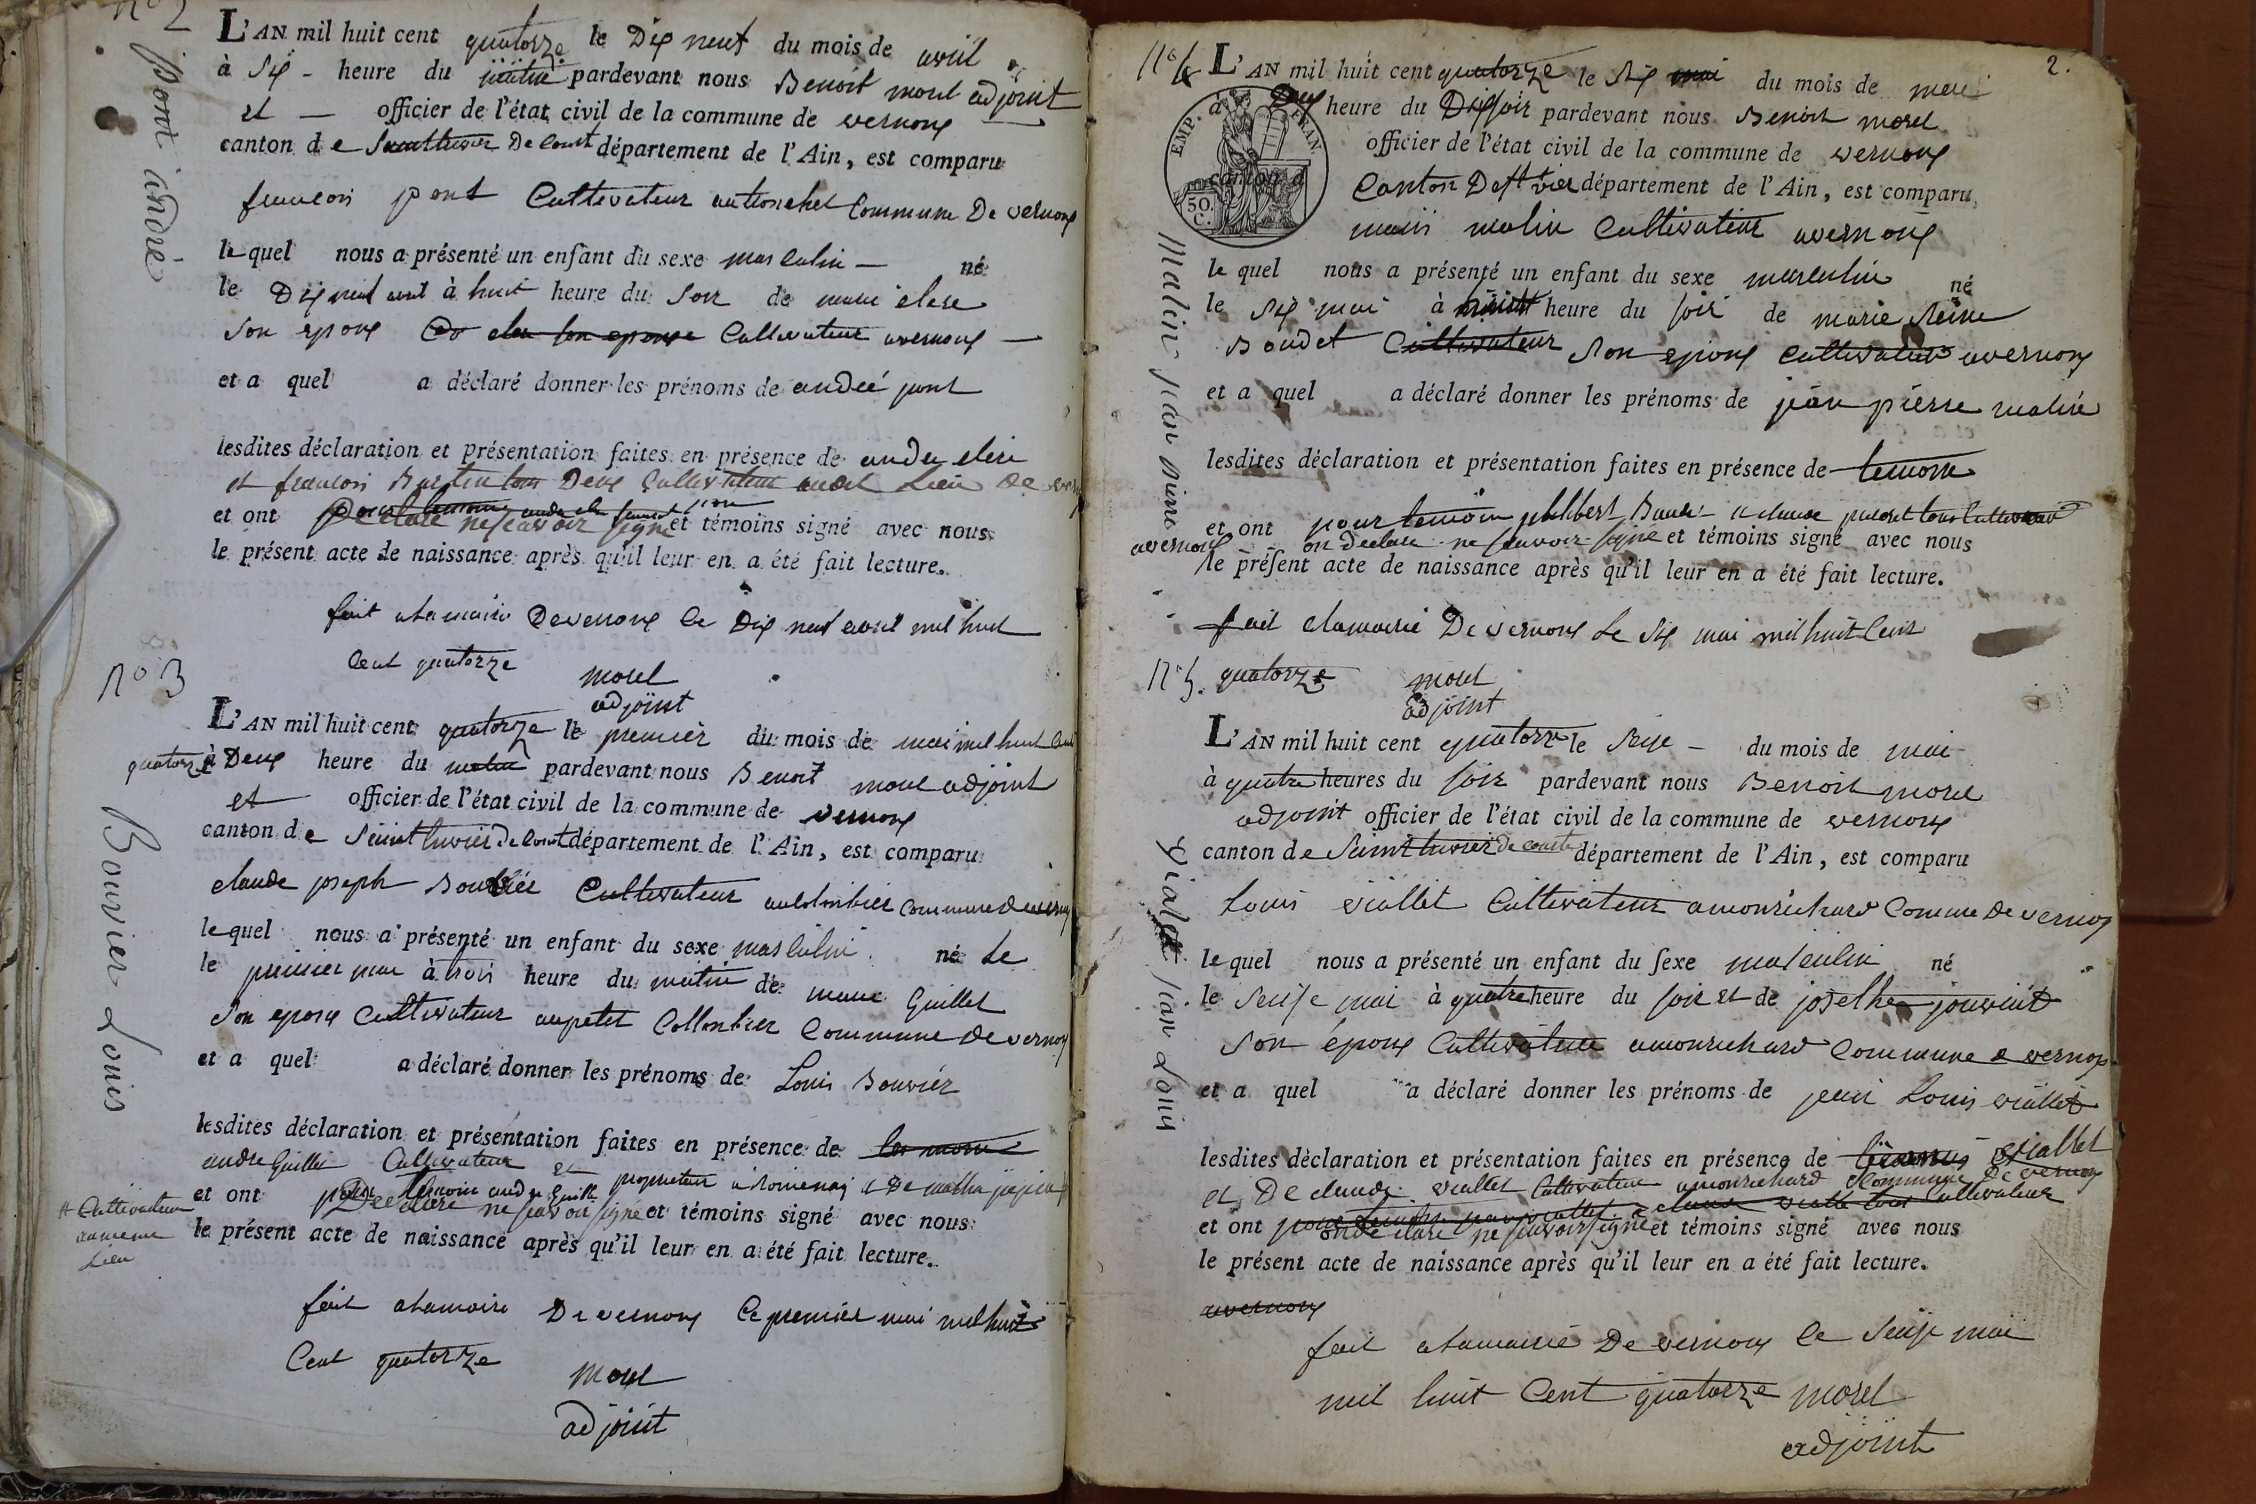 nº 2
pont andré
L'AN mil huit cent quatorze le Dix neuf du mois de avril
à Six - heure du matin pardevant nous Benoit morel adjoint
et — officier de l'état civil de la commune de vernoux
canton de Saint trivier De Court département de l'Ain, est comparu
francois pont Cultivateur Commune De vernoux
le quel nous a présenté un enfant du sexe masculin — né
le Dix neuf avril à huit heure du Soir de marie clere
Son epoux Cultivateur avernoux —
et a quel a déclaré donner les prénoms de andré pont
lesdites déclaration et présentation faites en présence de andre clere
et francois tous Deux Cultivateur audit Lieu De
et ont Declare ne scavoir signe et témoins signé avec nous
le présent acte de naissance après qu'il leur en a été fait lecture.
fait alamairie Devernoux le Dix neuf avril mil huit
Cent quatorze
morel
adjoint
nº 3
Bouvier Louis
L'AN mil huit cent quatorze le premier du mois de mai mil huit Cent
quatorze à Deux heure du matin pardevant nous Benoit morel adjoint
et officier de l'état civil de la commune de vernoux
canton de Saint trivier De Court département de l'Ain, est comparu
claude joseph Bouvier Cultivateur aucolombier Commune Devernoux
le quel nous a présenté un enfant du sexe masculin né Le
le premier mai à trois heure du matin de marie Guillet
Son epoux Cultivateur aupetit Collonbier Commune De vernoux
et a quel a déclaré donner les prénoms de Louis Bouvier
lesdites déclaration et présentation faites en présence de
andre Guillet Cultivateur et proprietaire à Romenay
et ont Declare ne scavoir signe et témoins signé avec nous
Cultivateur
aumeme
Lieu
le présent acte de naissance après qu'il leur en a été fait lecture.
fait alamairie De vernoux le premier mai mil huit
Cent quatorze
morel
adjoint
2.
nº 4
Malin jean pierre
EMP. FRAN.
50.
C.
L'AN mil huit cent quatorze le Six mai du mois de mai
à heure du soir pardevant nous Benoit morel
officier de l'état civil de la commune de vernoux
canton d
Canton De St trivier département de l'Ain, est comparu
malin Cultivateur avernoux
le quel nous a présenté un enfant du sexe masculin né
le Six mai à heure du soir de marie Reine
Boudet Cultivateur Son epoux Cultivateur avernoux
et a quel a déclaré donner les prénoms de jean pierre malin
lesdites déclaration et présentation faites en présence de temoin
et ont pour temoin philibert et claude tous Cultivateur
avernoux on Declare ne scavoir signe et témoins signé avec nous
le présent acte de naissance après qu'il leur en a été fait lecture.
fait alamairie De vernoux Le Six mai mil huit Cent
quatorze
morel
adjoint
nº 5.
Viallet jean Louis
L'AN mil huit cent quatorze le Seize — du mois de mai
à quatre heures du soir pardevant nous Benoit morel
adjoint officier de l'état civil de la commune de vernoux
canton de Saint trivier de courte département de l'Ain, est comparu
Louis viallet Cultivateur amonrichard Commune De vernoux
le quel nous a présenté un enfant du sexe masculin né
le Seize mai à quatre heure du soir et de josephe
Son époux Cultivateur amonrichard Commune de vernoux
et a quel a déclaré donner les prénoms de jean Louis viallet
lesdites déclaration et présentation faites en présence de viallet
et De claude viallet Cultivateur amonrichard Commune De vernoux
et ont on declare ne scavoir signe et témoins signé avec nous
le présent acte de naissance après qu'il leur en a été fait lecture.
avernoux
fait alamairie De vernoux le Seize mai
mil huit Cent quatorze morel
adjoint